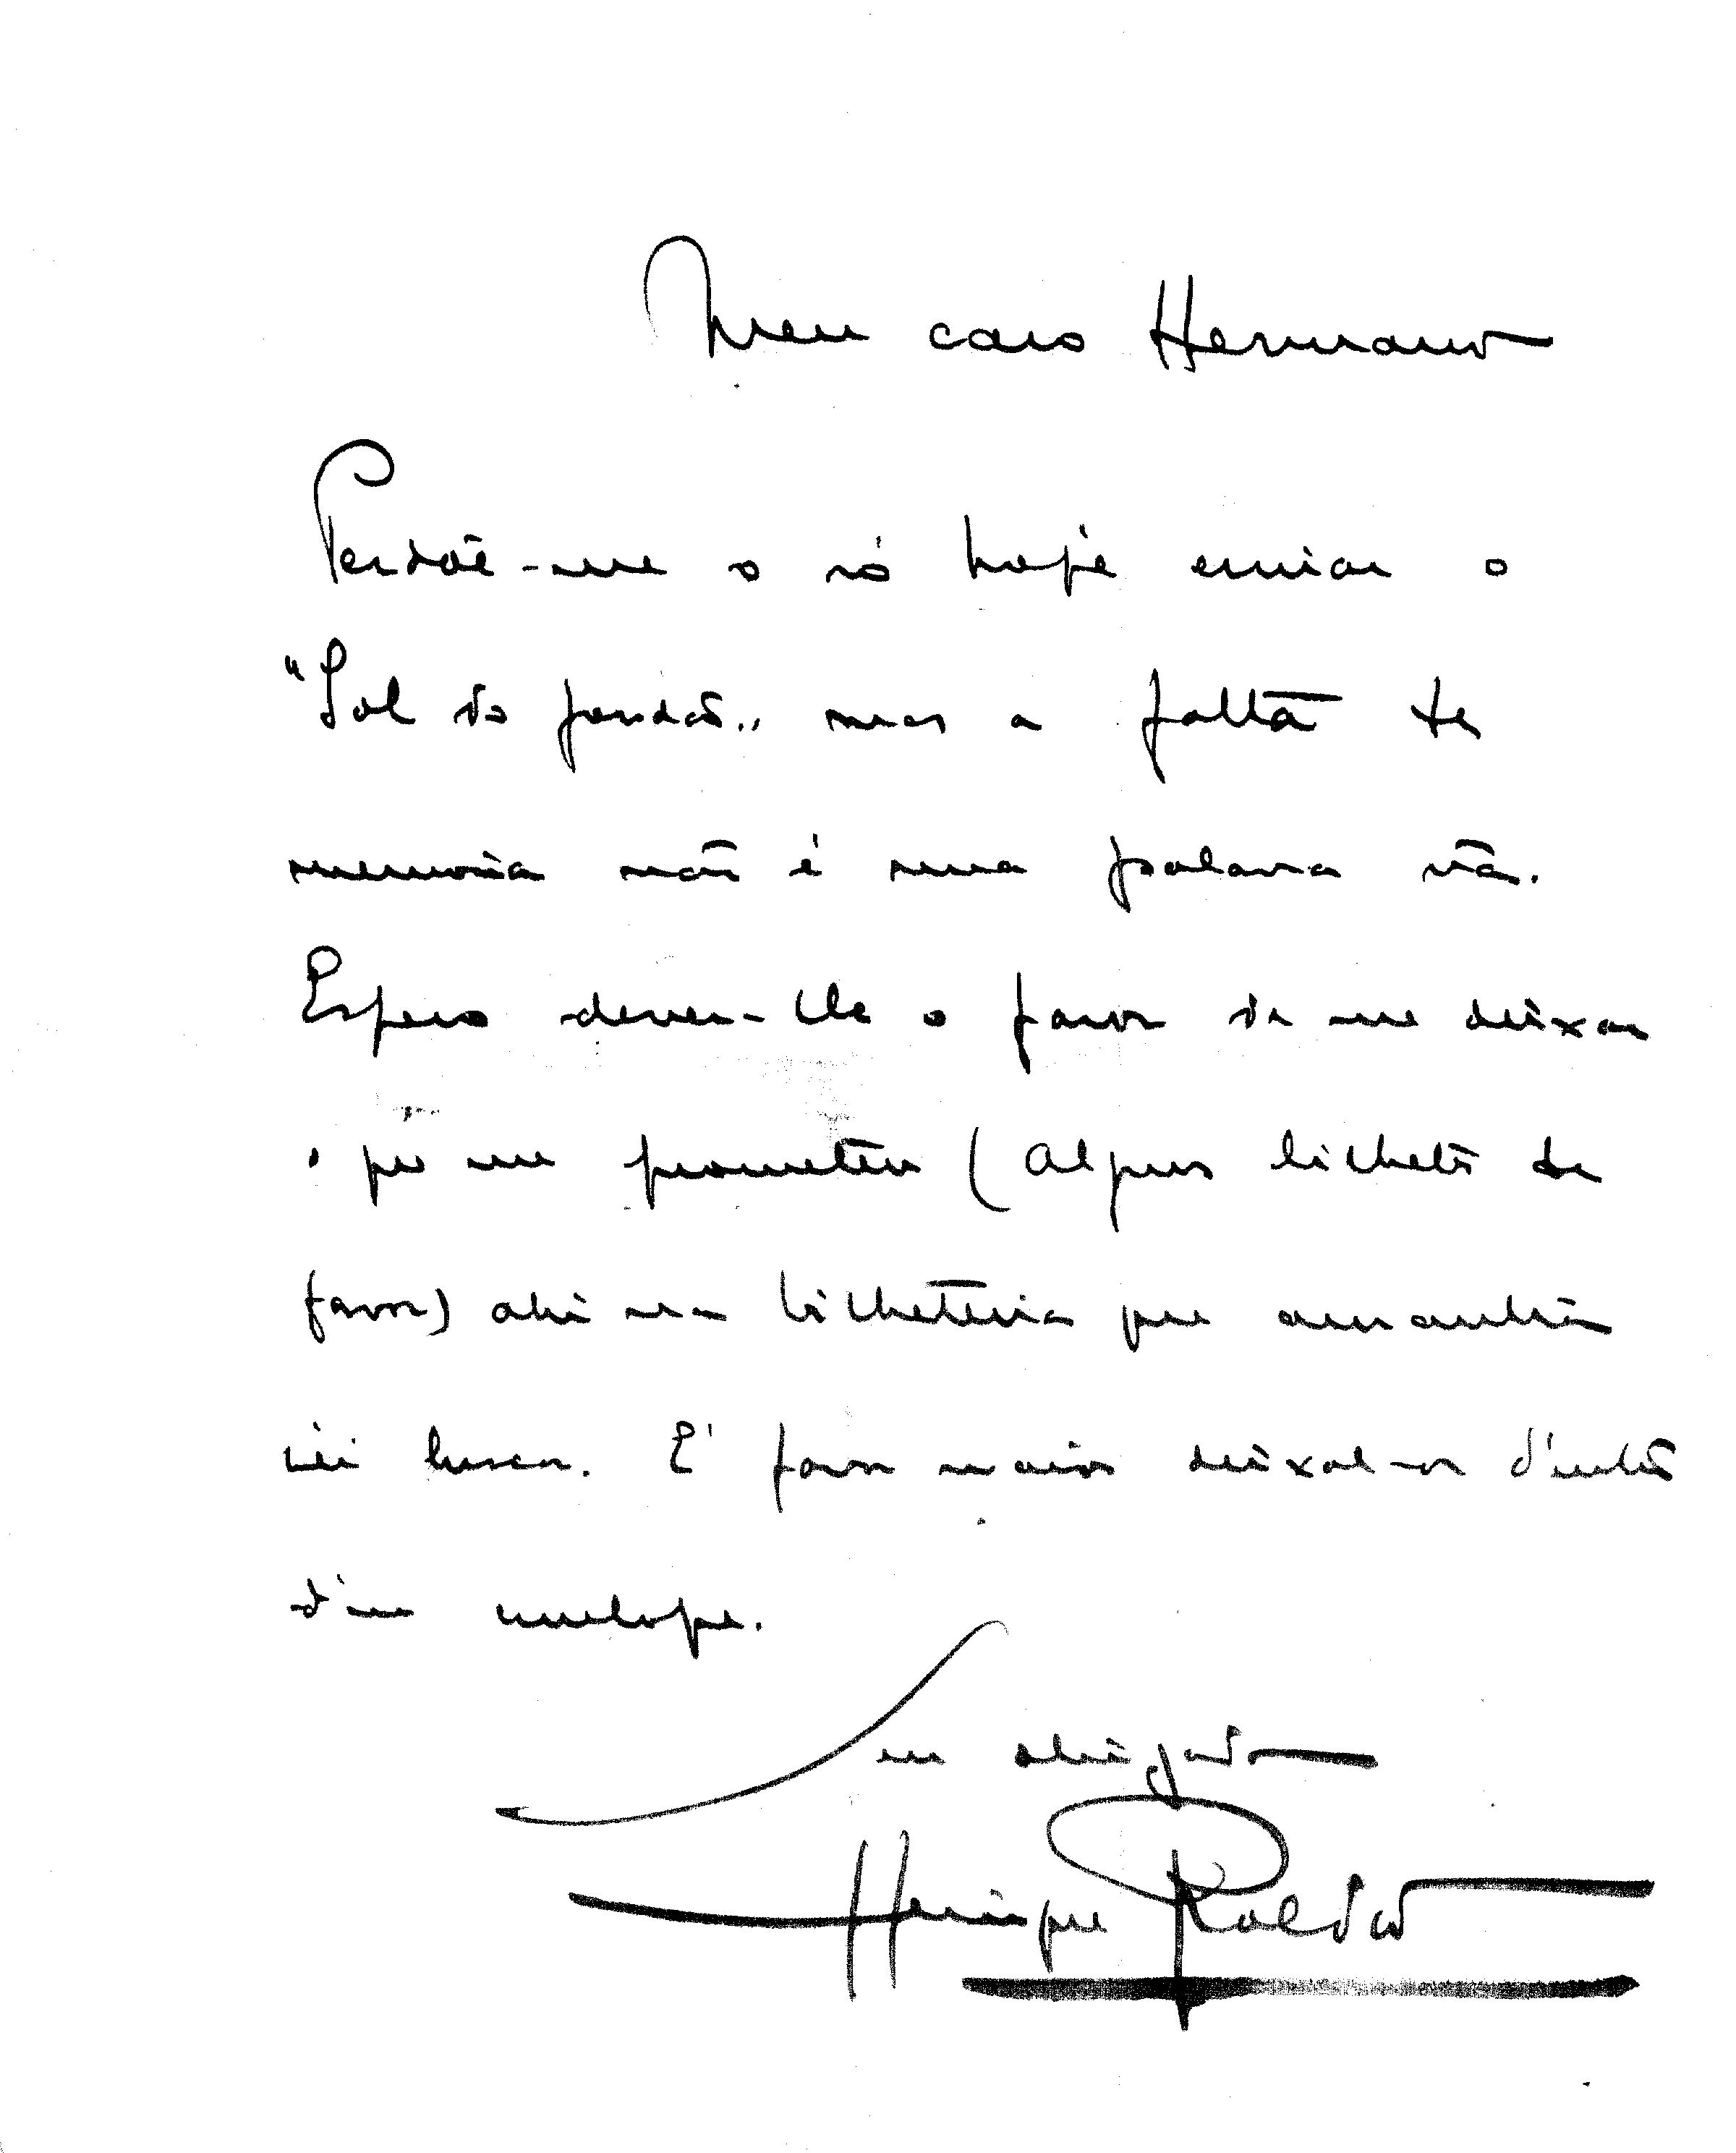 Meu caro Hermano
Perdôe-me o só hoje enviar o
"Sol do jordão" mas a falta de
memoria não é uma palavra vã.
Espero dever-lhe o favor de me deixar
o que me prometeu (Algum bilhete de
favor) ahi na bilheteria que amanhã
irei buscar. É favor maior deixal-os d'entro
d'um envelope.
seu obrigado
Henrique Roldão